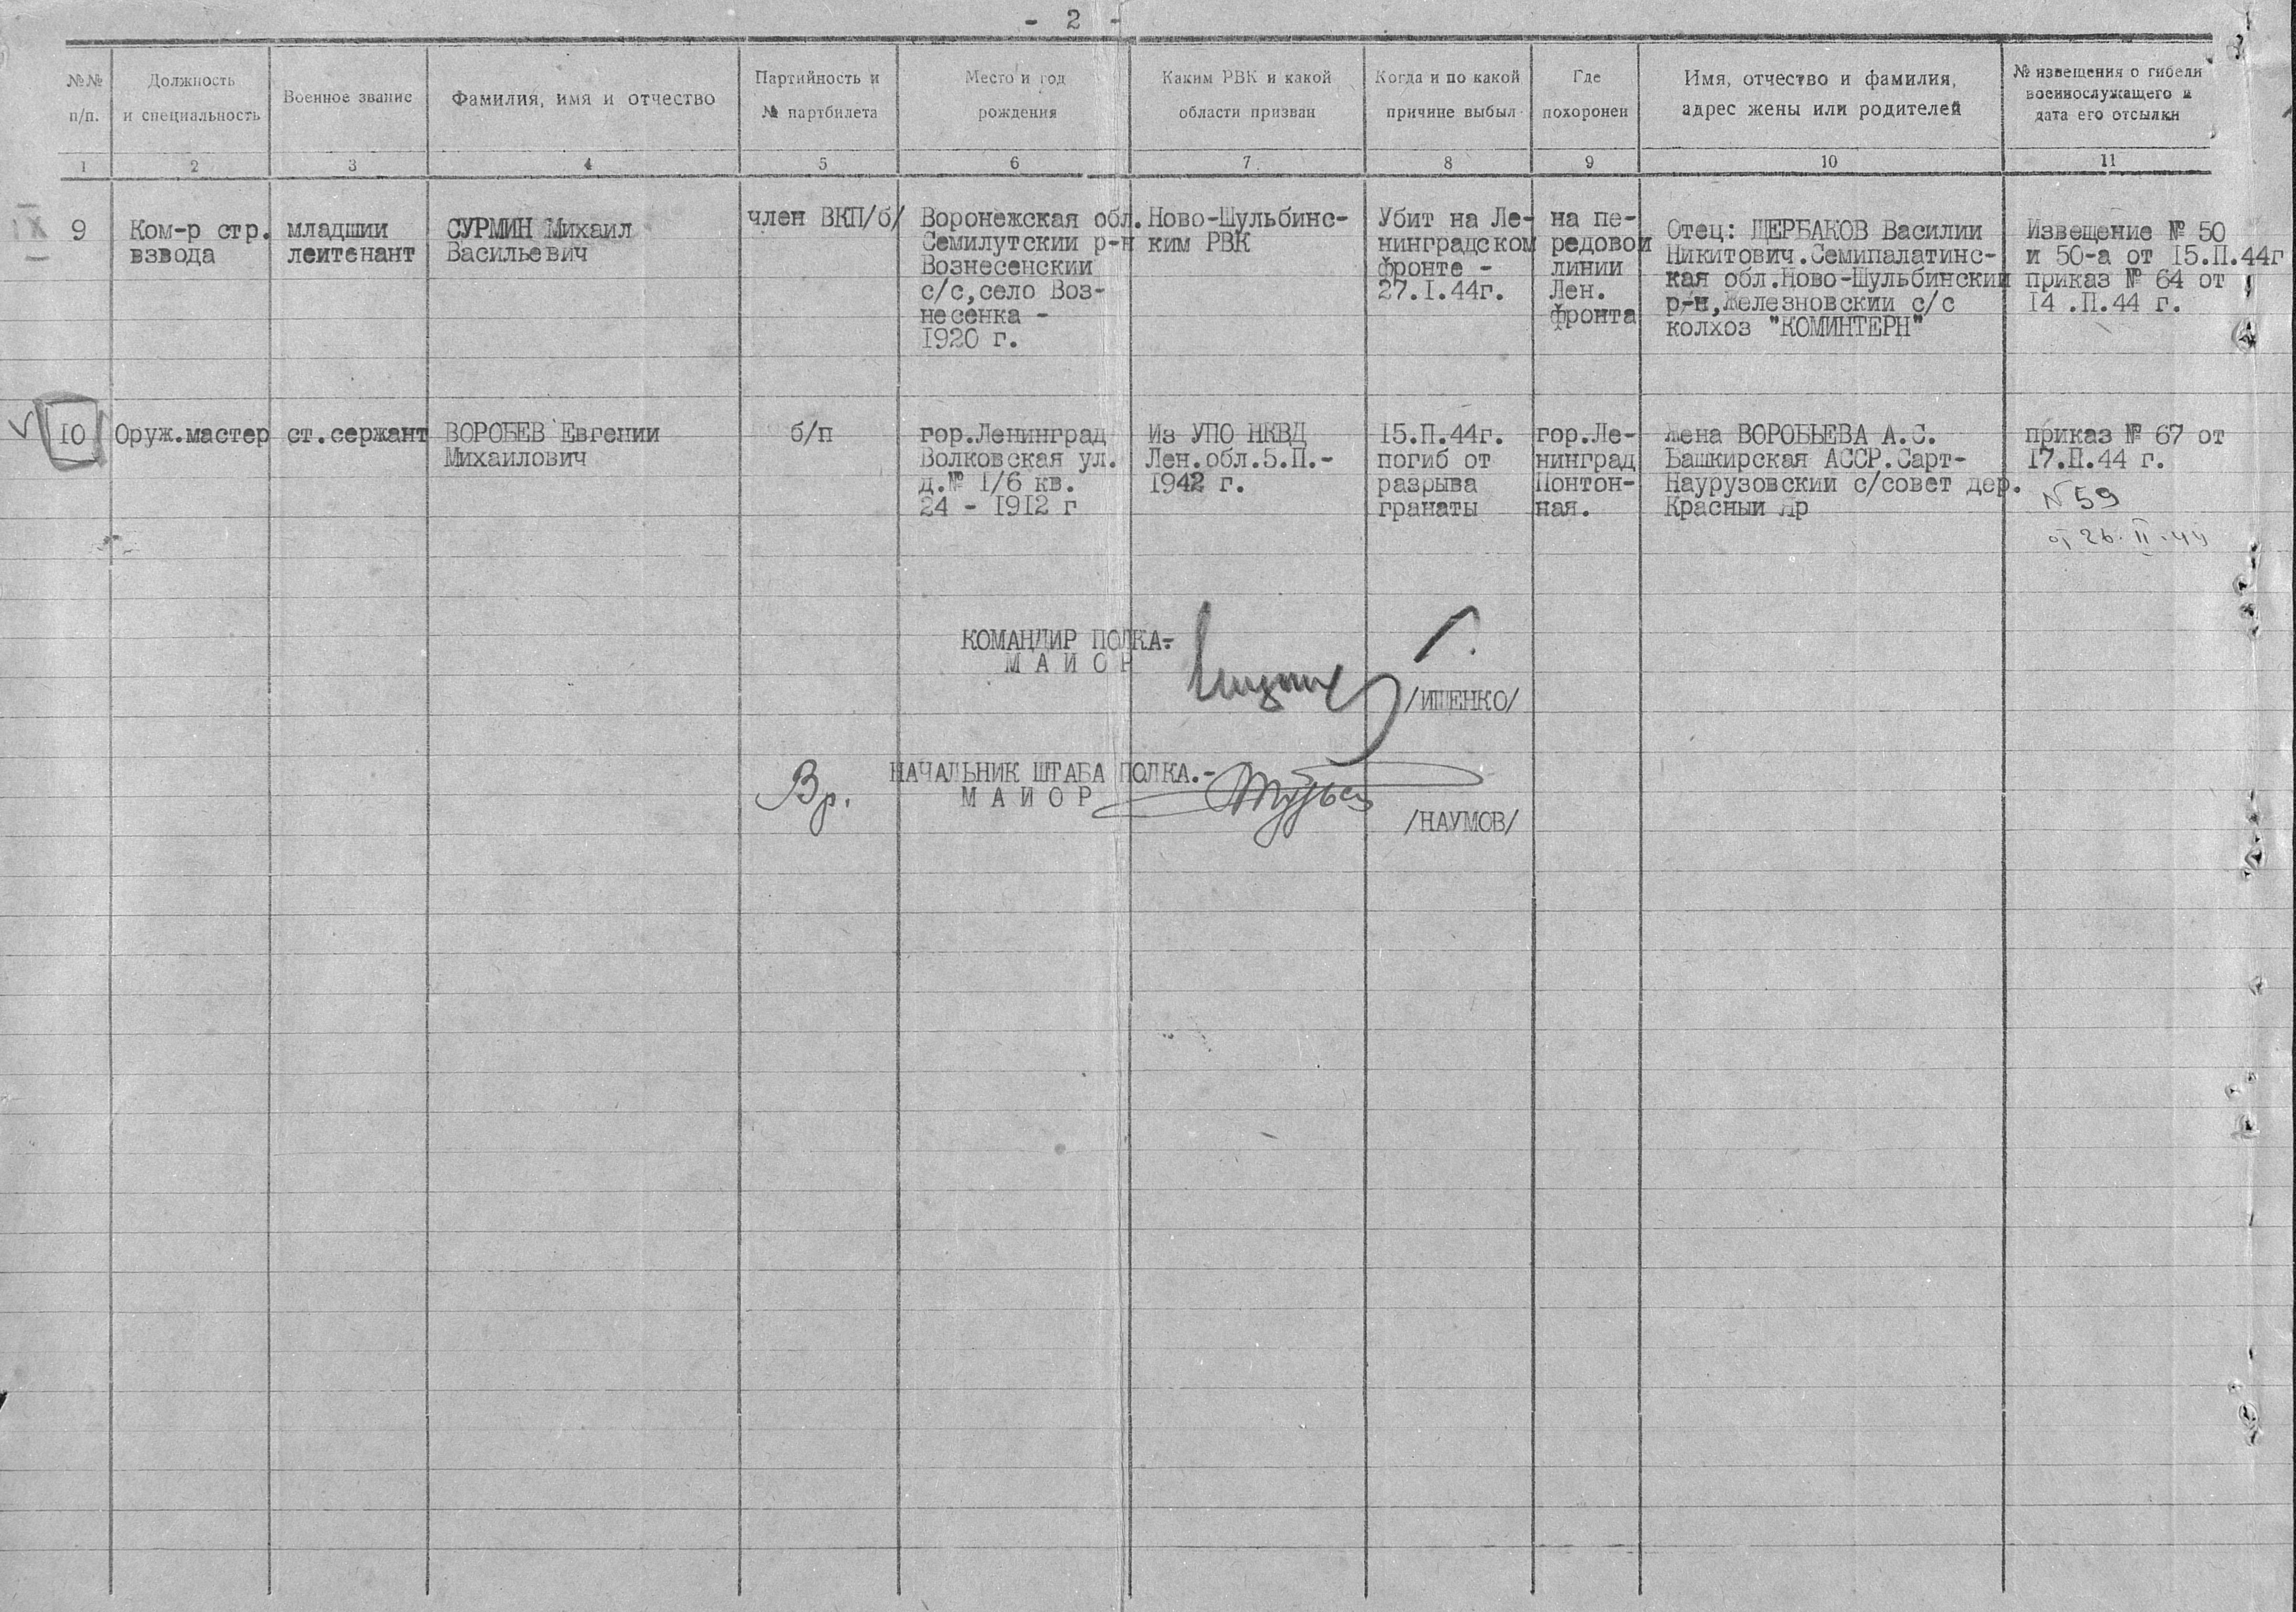 - 2 -
№№ п/п.
Должность и специальность
Военное звание
Фамилия, имя и отчество
Партийность и № партбилета
Место и год рождения
Каким РВК и какой области призван
Когда и по какой причине выбыл
Где похоронен
Имя, отчество и фамилия, адрес жены или родителей
№ извещения о гибели военнослужащего и дата его отсылки
1 2 3 4 5 6 7. 8 9 10 11
IX
9
Ком-р стр.
взвода
младшии
леитенант
СУРМИН Михаил
Васильевич
член ВКП/б/
Воронежская обл.
Семилутскии р-н
Вознесенскии
с/с,село Воз-
несенка -
1920 г.
Ново-Шульбинс-
ким РВК
Убит на Ле-
нинградском
фронте -
27.I.44г.
на пе-
редовои
линии
Лен.
фронта
Отец: ЩЕРБАКОВ Василии
Никитович.Семипалатинс-
кая обл.Ново-Шульбинскии
р-н,Железновскии с/с
колхоз "КОМИНТЕРН"
Извещение № 50
и 50-а от 15.П.44г
приказ № 64 от
14 .П.44 г.
10
Оруж.мастер
ст.сержант
ВОРОБЕВ Евгении
Михаилович
б/п
гор.Ленинград
Волковская ул.
д.№ 1/6 кв.
24 - 1912 г
Из УПО НКВД
Лен.обл.5.П.-
1942 г.
15.П.44г.
погиб от
разрыва
гранаты
гор.Ле-
нинград
Понтон-
ная.
Жена ВОРОБЬЕВА А.С.
Башкирская АССР.Сарт-
Наурузовскии с/совет дер.
Красныи Яр
приказ № 67 от
17.П.44 г.
N 59
от 26.II.44
КОМАНДИР ПОЛКА-
М А И О Р
/ИЩЕНКО/
Вр.
НАЧАЛЬНИК ШТАБА ПОЛКА.-
М А И О Р
/НАУМОВ/